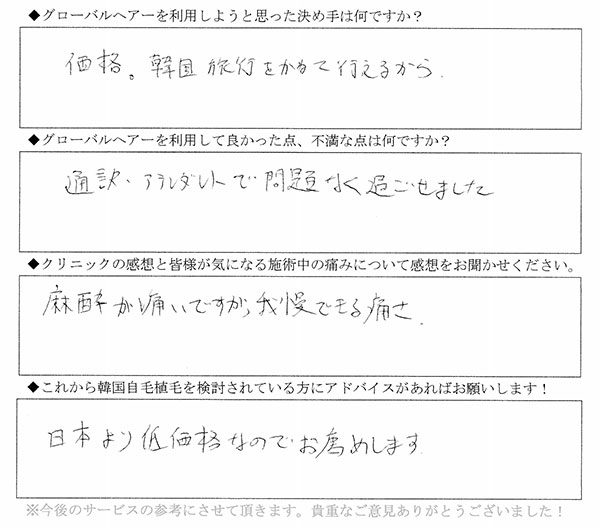 ◆グローバルヘアーを利用しようと思った決め手は何ですか?
価格。韓国旅行をかねて行えるから.
◆グローバルヘアーを利用して良かった点、不満な点は何ですか?
通訳・アテンダントで問題なく過ごせました
◆クリニックの感想と皆様が気になる施術中の痛みについて感想をお聞かせください。
麻酔が痛いですが、我慢できる痛さ.
◆これから韓国自毛植毛を検討されている方にアドバイスがあればお願いします!
日本より低価格なのでお薦めします
※今後のサービスの参考にさせて頂きます。貴重なご意見ありがとうございました!